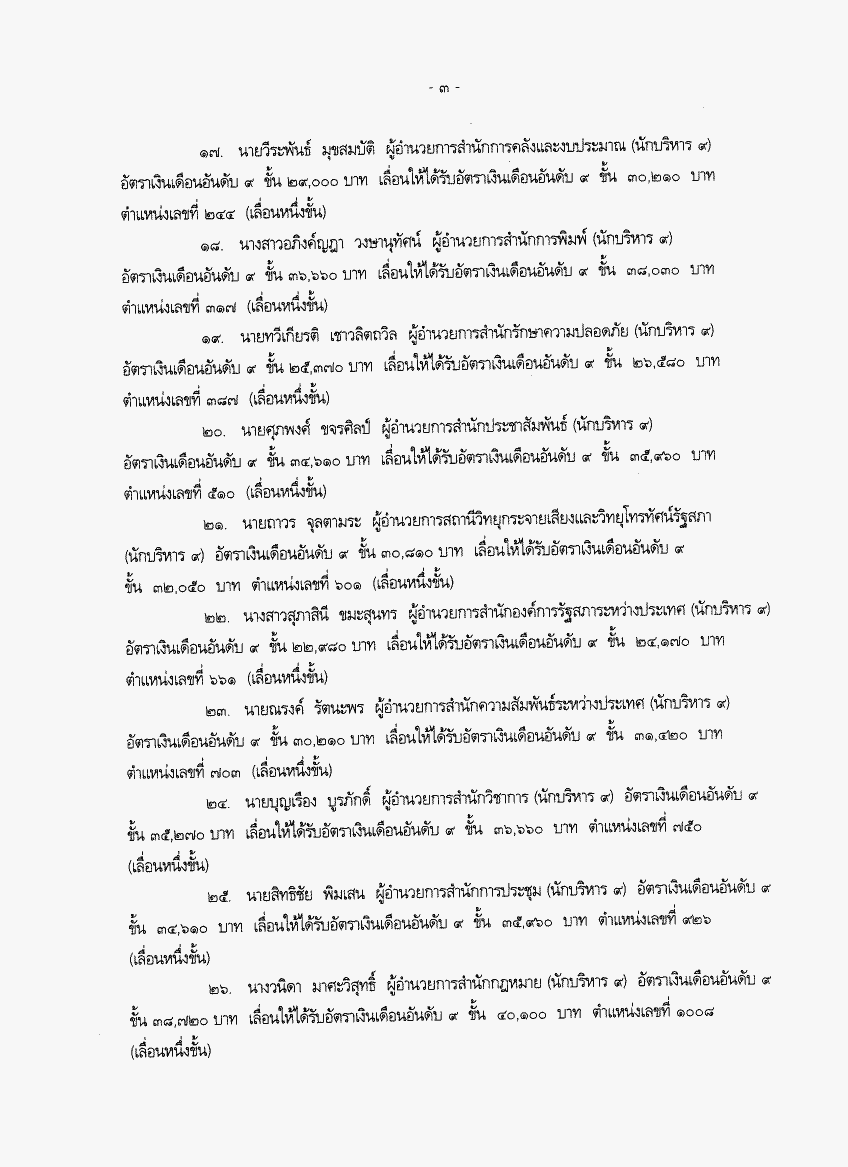 - ๓ -
๑๗. นายวีระพันธ์ มุขสมบัติ ผู้อำนวยการสำนักการคลังและงบประมาณ (นักบริหาร ๙)
อัตราเงินเดือนอันดับ ๙ ขั้น ๒๙,๐๐๐ บาท เลื่อนให้ได้รับอัตราเงินเดือนอันดับ ๙ ขั้น ๓๐,๒๑๐ บาท
ตำแหน่งเลขที่ ๒๔๔ (เลื่อนหนึ่งขั้น)
๑๘. นางสาวอภิงค์ญฎา วงษานุทัศน์ ผู้อำนวยการสำนักการพิมพ์ (นักบริหาร ๙)
อัตราเงินเดือนอันดับ ๙ ขั้น ๓๖,๖๖๐ บาท เลื่อนให้ได้รับอัตราเงินเดือนอันดับ ๙ ขั้น ๓๘,๐๓๐ บาท
ตำแหน่งเลขที่ ๓๑๗ (เลื่อนหนึ่งขั้น)
๑๙. นายทวีเกียรติ เชาวลิตถวิล ผู้อำนวยการสำนักรักษาความปลอดภัย (นักบริหาร ๙)
อัตราเงินเดือนอันดับ ๙ ขั้น ๒๕,๓๗๐ บาท เลื่อนให้ได้รับอัตราเงินเดือนอันดับ ๙ ขั้น ๒๖,๕๘๐ บาท
ตำแหน่งเลขที่ ๓๘๗ (เลื่อนหนึ่งขั้น)
๒๐. นายศุภพงศ์ ขจรศิลป์ ผู้อำนวยการสำนักประชาสัมพันธ์ (นักบริหาร ๙)
อัตราเงินเดือนอันดับ ๙ ขั้น ๓๔,๖๑๐ บาท เลื่อนให้ได้รับอัตราเงินเดือนอันดับ ๙ ขั้น ๓๕,๙๖๐ บาท
ตำแหน่งเลขที่ ๕๑๐ (เลื่อนหนึ่งขั้น)
๒๑. นายถาวร จุลตามระ ผู้อำนวยการสถานีวิทยุกระจายเสียงและวิทยุโทรทัศน์รัฐสภา
(นักบริหาร ๙) อัตราเงินเดือนอันดับ ๙ ขั้น ๓๐,๘๑๐ บาท เลื่อนให้ได้รับอัตราเงินเดือนอันดับ ๙
ขั้น ๓๒,๐๕๐ บาท ตำแหน่งเลขที่ ๖๐๑ (เลื่อนหนึ่งขั้น)
๒๒. นางสาวสุภาสินี ขมะสุนทร ผู้อำนวยการสำนักองค์การรัฐสภาระหว่างประเทศ (นักบริหาร ๙)
อัตราเงินเดือนอันดับ ๙ ขั้น ๒๒,๙๘๐ บาท เลื่อนให้ได้รับอัตราเงินเดือนอันดับ ๙ ขั้น ๒๔,๑๗๐ บาท
ตำแหน่งเลขที่ ๖๖๑ (เลื่อนหนึ่งขั้น)
๒๓. นายณรงค์ รัตนะพร ผู้อำนวยการสำนักความสัมพันธ์ระหว่างประเทศ (นักบริหาร ๙)
อัตราเงินเดือนอันดับ ๙ ขั้น ๓๐,๒๑๐ บาท เลื่อนให้ได้รับอัตราเงินเดือนอันดับ ๙ ขั้น ๓๑,๔๒๐ บาท
ตำแหน่งเลขที่ ๗๐๓ (เลื่อนหนึ่งขั้น)
๒๔. นายบุญเรือง บูรภักดิ์ ผู้อำนวยการสำนักวิชาการ (นักบริหาร ๙) อัตราเงินเดือนอันดับ ๙
ขั้น ๓๕,๒๗๐ บาท เลื่อนให้ได้รับอัตราเงินเดือนอันดับ ๙ ขั้น ๓๖,๖๖๐ บาท ตำแหน่งเลขที่ ๗๕๐
(เลื่อนหนึ่งขั้น)
๒๕. นายสิทธิชัย พิมเสน ผู้อำนวยการสำนักการประชุม (นักบริหาร ๙) อัตราเงินเดือนอันดับ ๙
ขั้น ๓๔,๖๑๐ บาท เลื่อนให้ได้รับอัตราเงินเดือนอันดับ ๙ ขั้น ๓๕,๙๖๐ บาท ตำแหน่งเลขที่ ๙๒๖
(เลื่อนหนึ่งขั้น)
๒๖. นางวนิดา มาศะวิสุทธิ์ ผู้อำนวยการสำนักกฎหมาย (นักบริหาร ๙) อัตราเงินเดือนอันดับ ๙
ขั้น ๓๘,๗๒๐ บาท เลื่อนให้ได้รับอัตราเงินเดือนอันดับ ๙ ขั้น ๔๐,๑๐๐ บาท ตำแหน่งเลขที่ ๑๐๐๘
(เลื่อนหนึ่งขั้น)